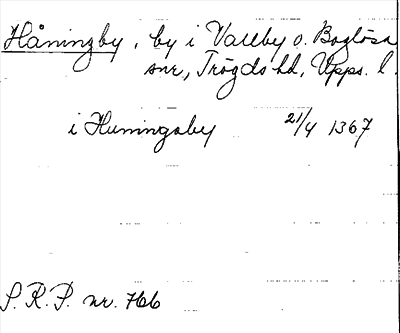 Håningby, by i Vallby o. Boglösa
snr, Trögds hd, Upps. l.
i Huningsby 21/4 1367
S. R. P. nr. 766